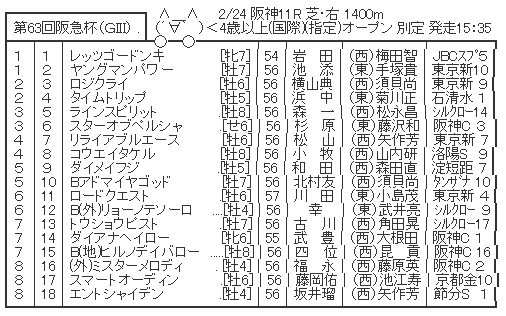 第63回阪急杯(GⅢ) ∧__∧ 2/24 阪神11R 芝・右 1400m
( ´∀`) <4歳以上(国際)(指定)オープン 別定 発走15:35
1│ 1│レッツゴードンキ [牝7]│54│岩　田│(西)梅田智│JBCスプ5
1│ 2│ヤングマンパワー [牡7]│56│池　添│(東)手塚貴│東京新10
2│ 3│ロジクライ [牡6]│56│横山典│(西)須貝尚│東京新 9
2│ 4│タイムトリップ [牡5]│56│浜　中│(東)菊川正│石清水 1
3│ 5│ラインスピリット [牡8]│56│森　一│(西)松永昌│シルクロー14
3│ 6│スターオブペルシャ [せ6]│56│杉　原│(東)藤沢和│阪神C 3
4│ 7│リライアブルエース [牡6]│56│松　山│(西)矢作芳│東京新 7
4│ 8│コウエイタケル [牡8]│56│小　牧│(西)山内研│洛陽S 9
5│ 9│ダイメイフジ [牡5]│56│和　田│(西)森田直│淀短距 7
5│10│Bアドマイヤゴッド [牡7]│56│北村友│(西)須貝尚│タンザナ 10
6│11│ロードクエスト [牡6]│57│川　田│(東)小島茂│東京新 4
6│12│B(外)リョーノテソーロ ....[牡4]│56│　幸　│(東)武井亮│シルクロー 9
7│13│トウショウピスト [牡7]│56│古　川│(西)角田晃│シルクロー17
7│14│ダイアナヘイロー [牝6]│55│武　豊│(西)大根田│阪神C 1
7│15│B(地)ヒルノデイバロー .....[牡8]│56│四　位│(西)昆　貢│阪神C 16
8│16│(外)ミスターメロディ .[牡4]│56│福　永│(西)藤原英│阪神C 2
8│17│スマートオーディン [牡6]│56│藤岡佑│(西)池江寿│京都金10
8│18│エントシャイデン .[牡4]│56│坂井瑠│(西)矢作芳│節分S 1